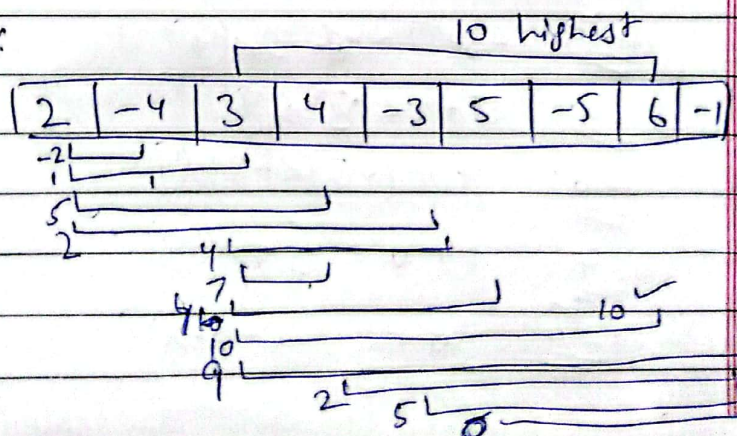 10 highest
2 -4 3 4 -3 5 -5 6 -1
-2
1 1
5
2 4
7
4 10 10 ✓
10
9
2
5
0